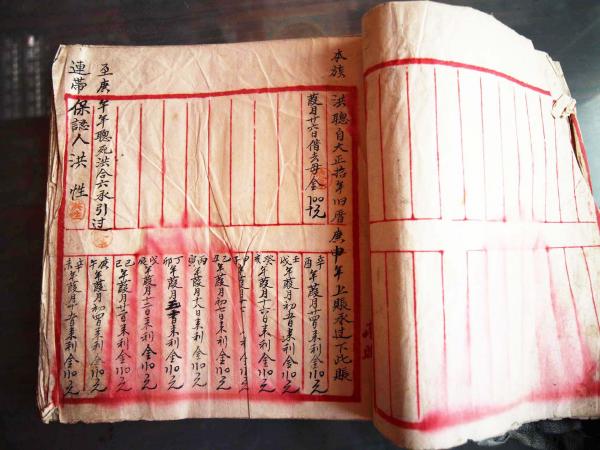 本族 洪聰自大正拾年旧曆庚申年上賬承过下此賬
葭月廿六日借去母金100元
辛酉年葭月廿四日来利金110元
壬戌年葭月初五日来利金110元
癸亥年葭月十六日来利金110元
甲子年葭月 利金110元
乙丑年葭月初七日来利金110元
丙寅年葭月十八日来利金110元
丁卯年葭月 来利金110元
戊辰年葭月十二日来利金110元
己巳年葭月廿二日来利金110元
庚午年葭月初四日来利金110元
辛未年葭月廿 日来利金110元
至庚午年聰死洪合六承引过
連帶保認人 洪性